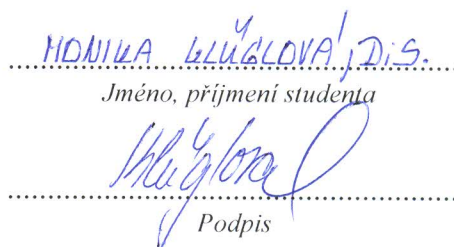 MONIKA KLŮGLOVÁ, DiS.
Jméno, příjmení studenta
Klůglová
Podpis